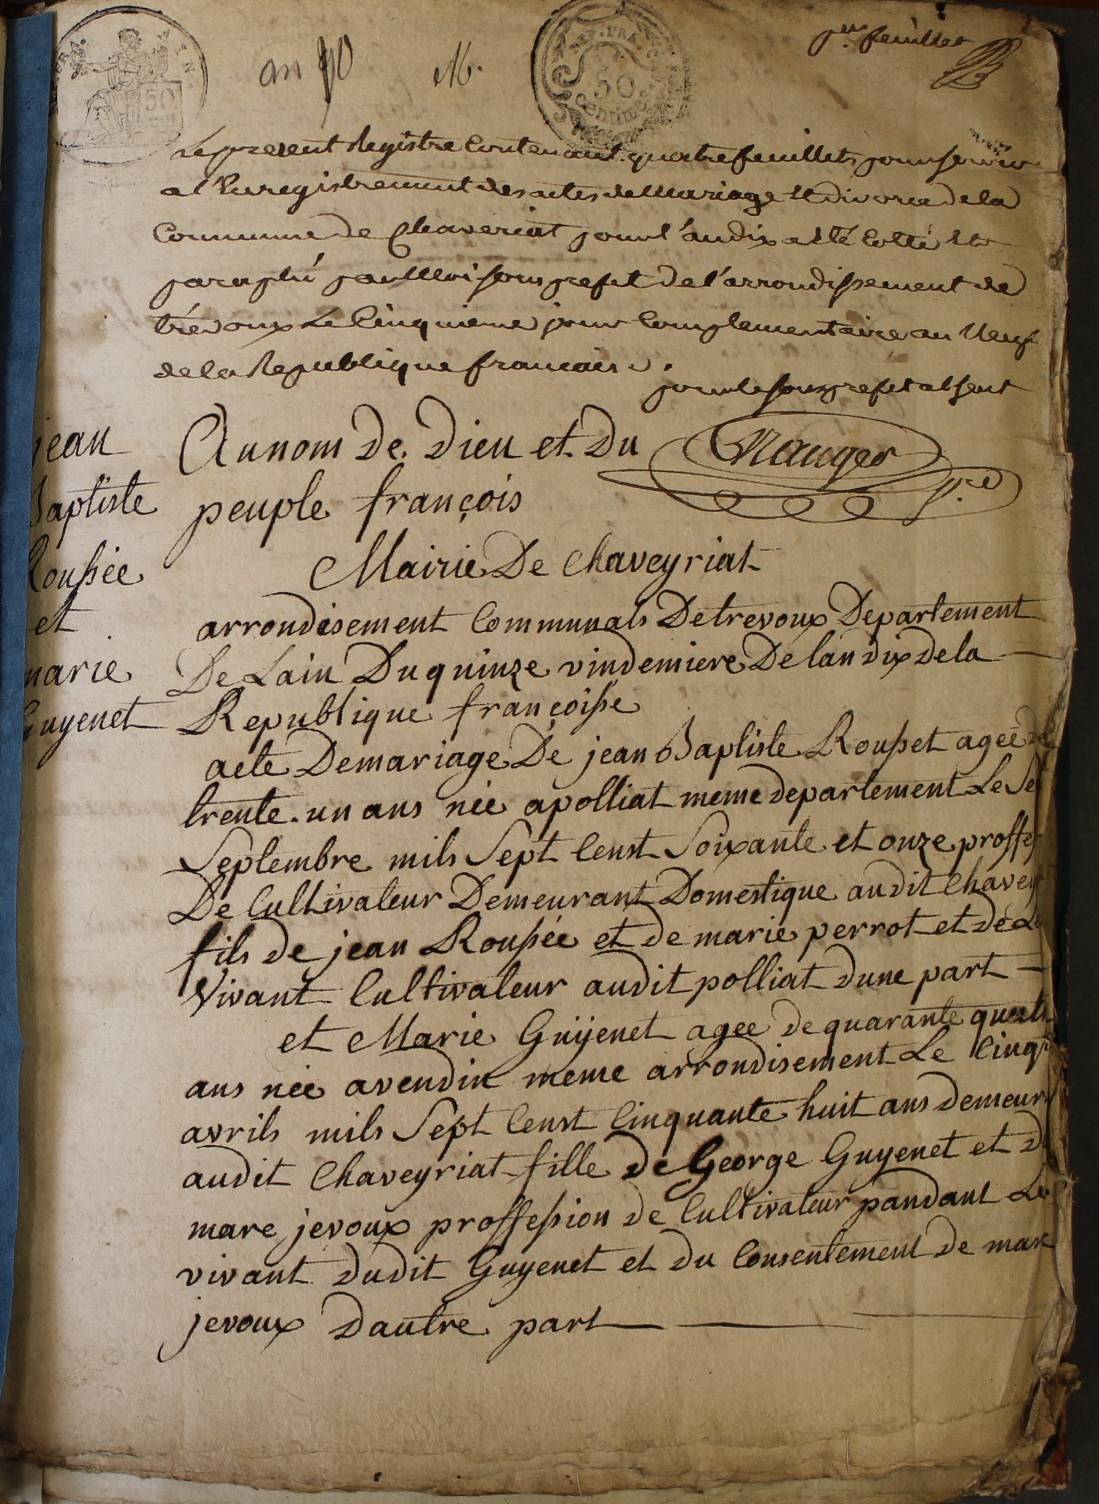 an 10 M.
1er feuillet
50
REP. FRA.
50
centimes
Le present Registre Contenant quatre feuillets pour servir
a l'Enregistrement des actes de Mariage Et divorce de la
Commune de Chaveriat pour l'an dix a Eté Cotté Et
paraphé par Moi sous prefet de l'arrondissement de
trévoux Le Cinquieme jour Complementaire an Neuf
de la Republique francaise.
pour le sous prefet absent
jean
Baptiste
Roussée
et
marie
Guyenet
Au nom De Dieu et Du
peuple françois
Mairie De Chaveyriat
arrondisement Communals De trevoux Departement
De Lain Du quinze vindemiere De lan dix de la
Republique françoisse
acte De mariage De jean Baptiste Rousset agee de
trente-un ans née a polliat meme departement Le
Septembre mils Sept Censt Soixante et onze proffes
De Cultivateur Demeurant Domestique audit Chavey
fils de jean Roussée et de marie perrot et de
Vivant Cultivateur audit polliat Dune part
et Marie Guyenet agee de quarante quat
ans née a vendin meme arrondisement Le Cinq
avrils mils Sept Censt Cinquante huit ans Demeur
audit Chaveyriat fille de George Guyenet et d
mare jevoux proffession de Cultivateur pandant Le
vivant dudit Guyenet et du Consentement De mar
jevoux Dautre part